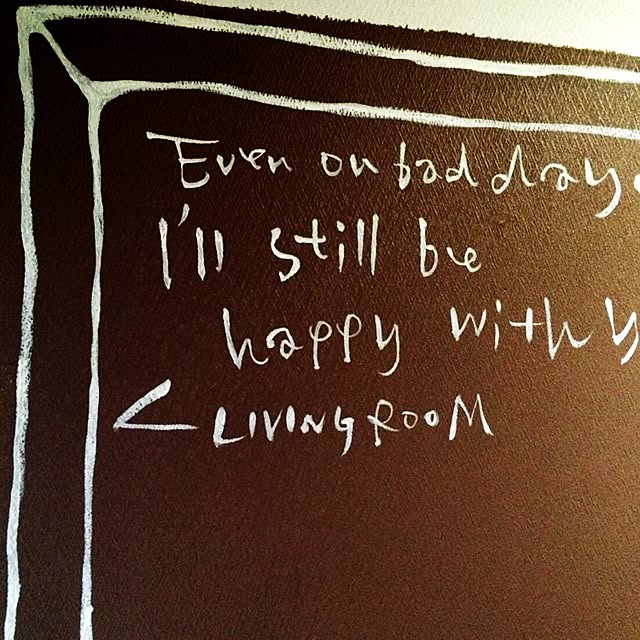 Even on bad days
I'll still be
happy with y
< LIVING ROOM